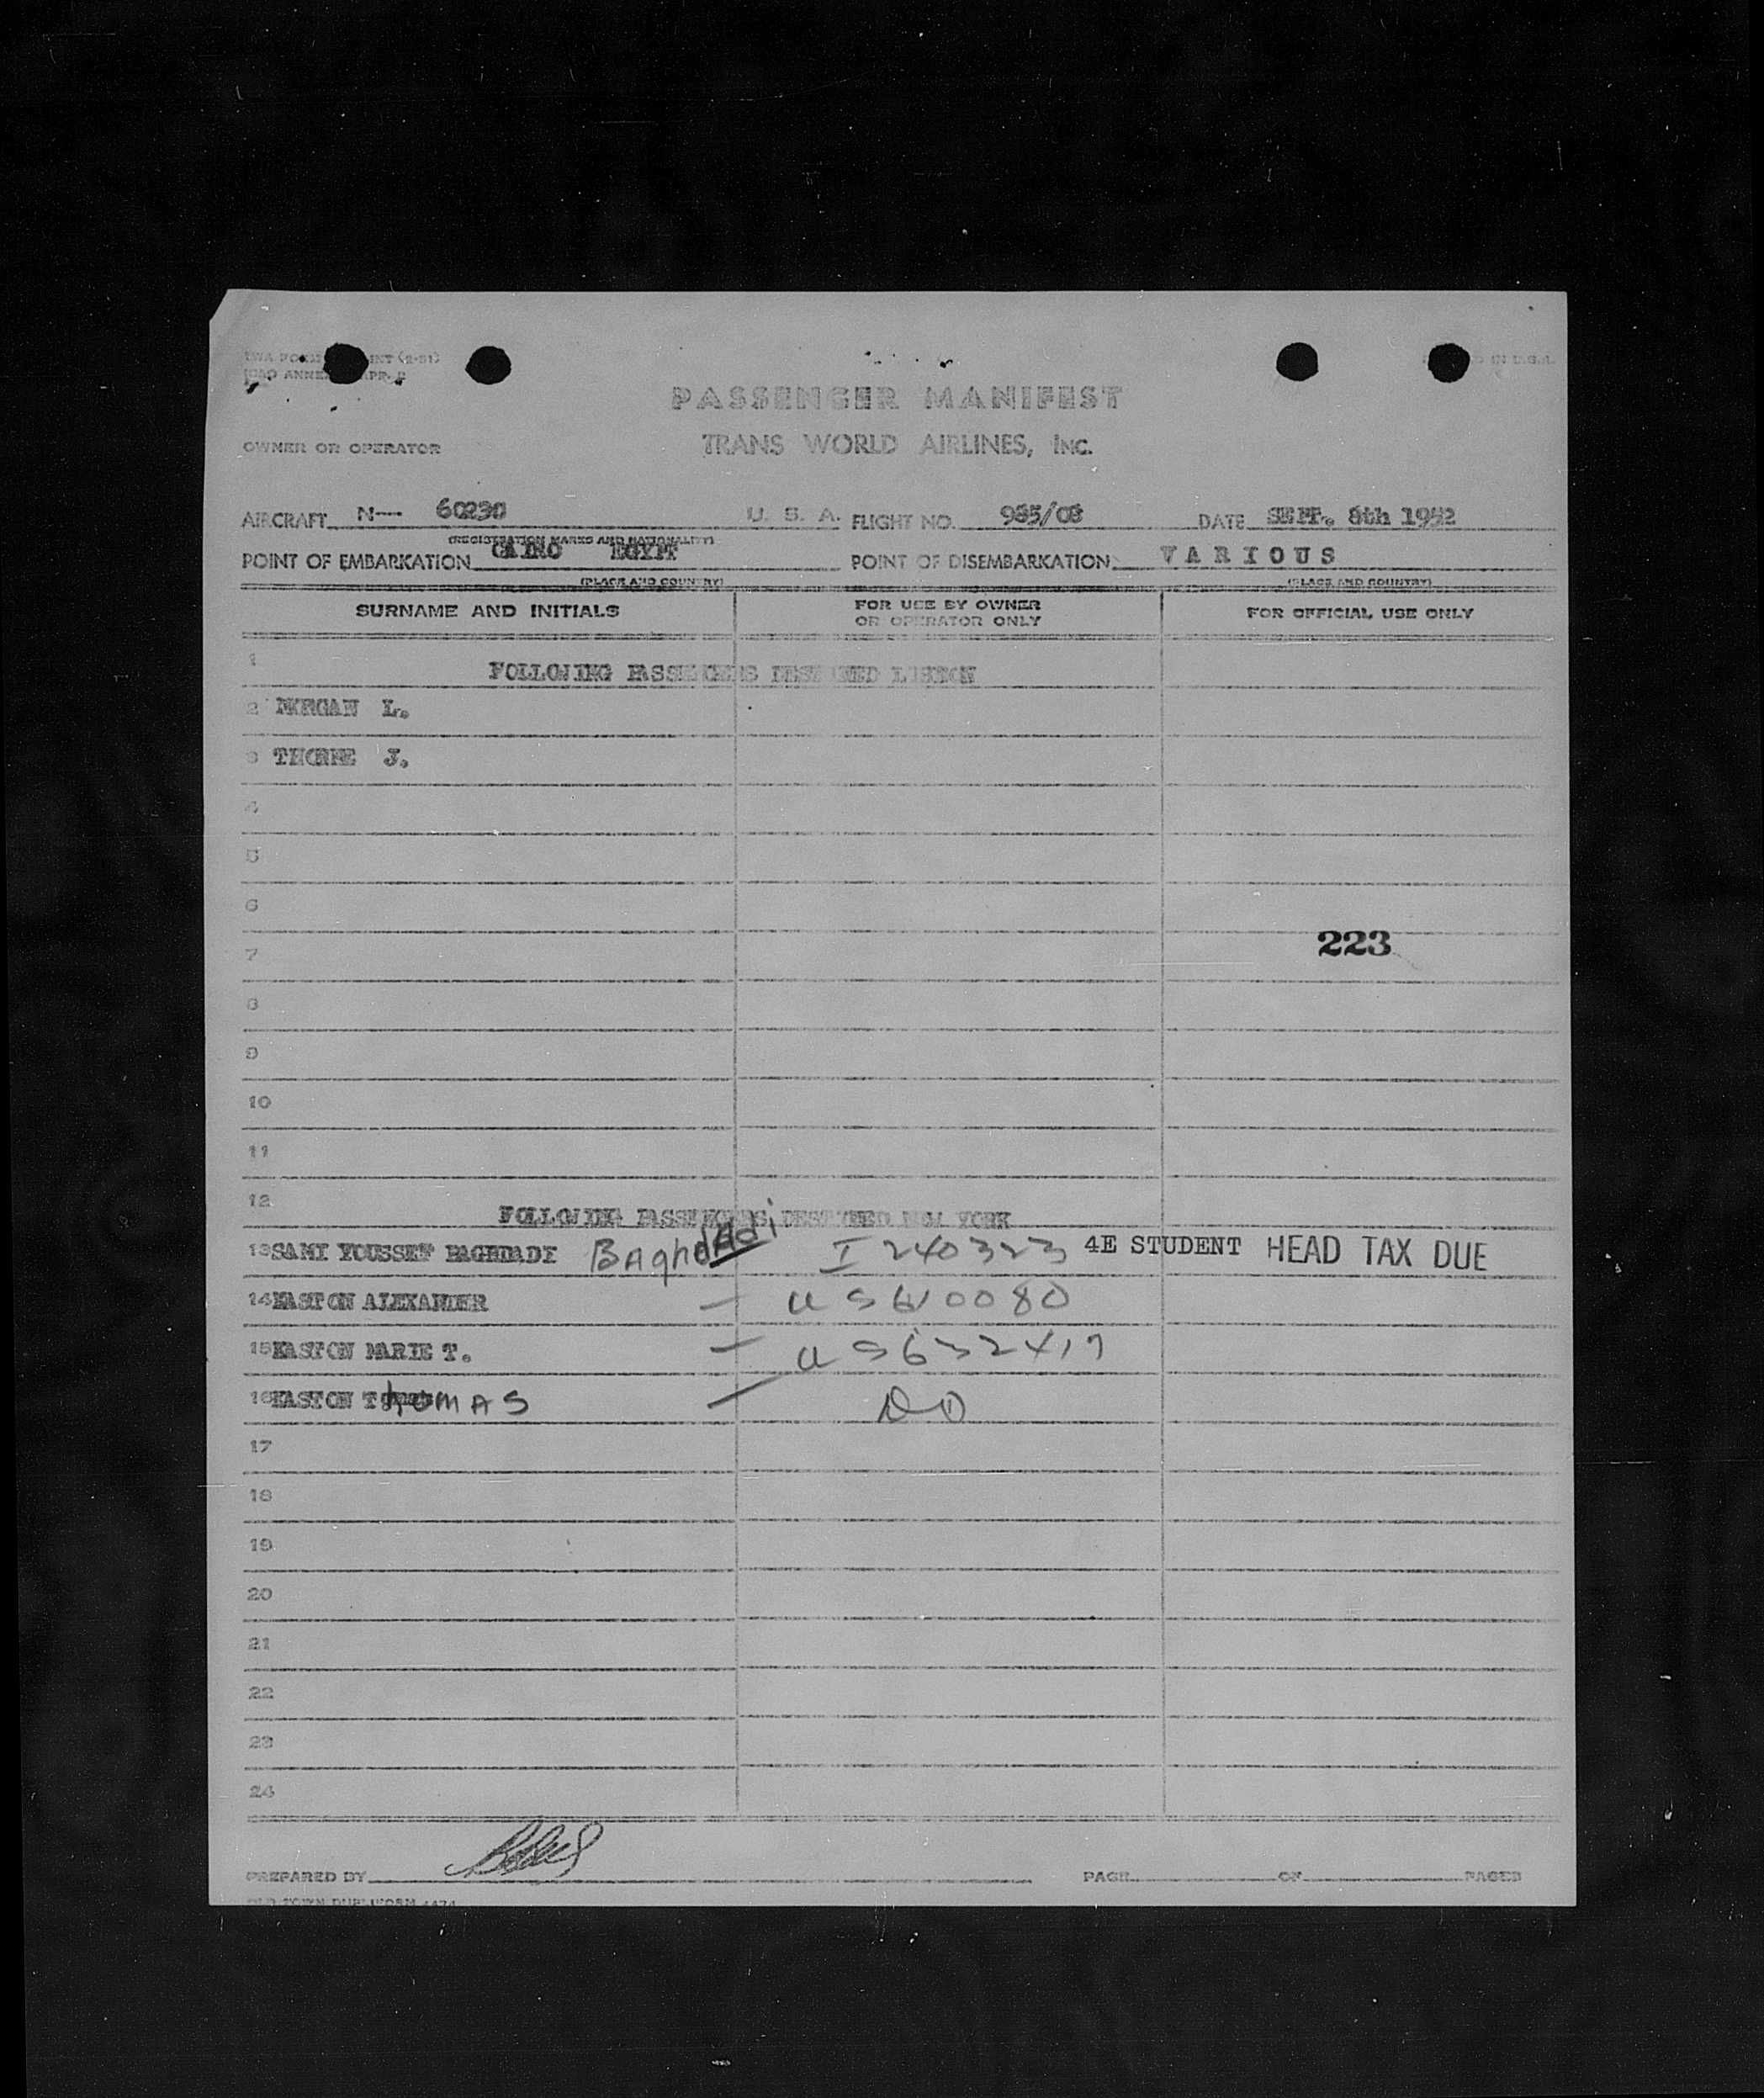 PASSENGER MANIFEST
OWNER OR OPERATOR TRANS WORLD AIRLINES, INC.
AIRCRAFT N— 60230 U. S. A. FLIGHT NO. 985/08 DATE SEPT. 8th 1952
(REGISTRATION MARKS AND NATIONALITY)
POINT OF EMBARKATION CAIRO EGYPT POINT OF DISEMBARKATION VARIOUS
(PLACE AND COUNTRY) (PLACE AND COUNTRY)
SURNAME AND INITIALS FOR USE BY OWNER OR OPERATOR ONLY FOR OFFICIAL USE ONLY
1 FOLLOWING PASSENGERS DESTINED LISBON
2 MORGAN L.
3 THORNE J.
4
5
6
7 223
8
9
10
11
12 FOLLOWING PASSENGERS DESTINED NEW YORK
13 SAMI YOUSSEF BAGHDADI Baghdadi I 240323 4E STUDENT HEAD TAX DUE
14 EASTON ALEXANDER —
15 EASTON MARIE T. — US 632419
16 EASTON Thomas — DO
17
18
19
20
21
22
23
24
PREPARED BY PAGE OF PAGES